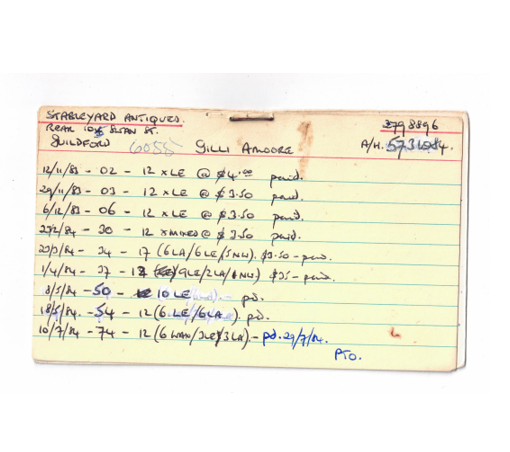 STABLEYARD ANTIQUES. 3798896
REAR SWAN ST.
GUILDFORD 6055 GILLI AMOORE A/H. 5731984.
12/11/83 - 02 - 12 x LE @ $4.00 paid.
29/11/83 - 03 - 12 x LE @ $3.50 paid.
6/12/83 - 06 - 12 x LE @ $3.50 paid.
- 30 - 12 x MIXED @ $3.50 paid.
- 34 - 17 (6LA/6LE/5NW). $3.50 - paid.
1/4/84 - 37 - (9LE/2LA/1NW) $35 - paid.
8/5/84 - 50 - 10 LE - pd.
18/5/84 - 54 - 12 (6 LE/6LA). pd.
10/7/84 - 74 - 12 (6 /3LE/3LA) - pd. 29/7/84.
PTO.